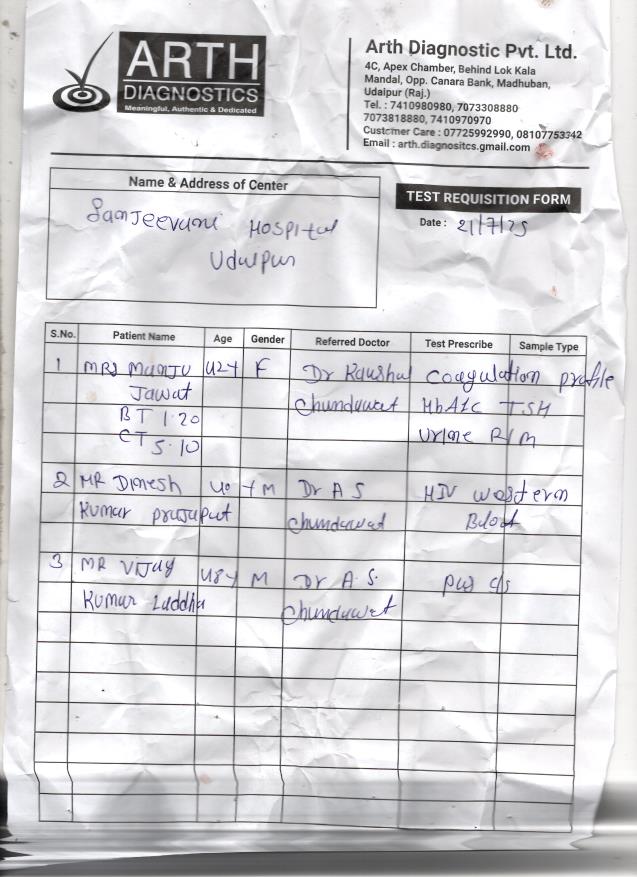 ARTH
DIAGNOSTICS
Meaningful, Authentic & Dedicated
Arth Diagnostic Pvt. Ltd.
4C, Apex Chamber, Behind Lok Kala
Mandal, Opp. Canara Bank, Madhuban,
Udaipur (Raj.)
Tel. : 7410980980, 7073308880
7073818880, 7410970970
Customer Care : 07725992990, 08107753342
Email : arth.diagnositcs.gmail.com
Name & Address of Center
TEST REQUISITION FORM
Sanjeevani Hospital
Udaipur
Date : 21/7/25
S.No. Patient Name Age Gender Referred Doctor Test Prescribe Sample Type
1 MRS Manju 42Y F Dr Kaushal Coagulation profile
Jawat Chundawat HbA1c TSH
BT 1.20 Urine R/M
CT 5.10
2 MR Dinesh 40 Y M Dr A S HIV western
Kumar prajaput Chundawat Blot
3 MR Vijay 48Y M Dr A.S. pus c/s
Kumar Laddha Chundawat